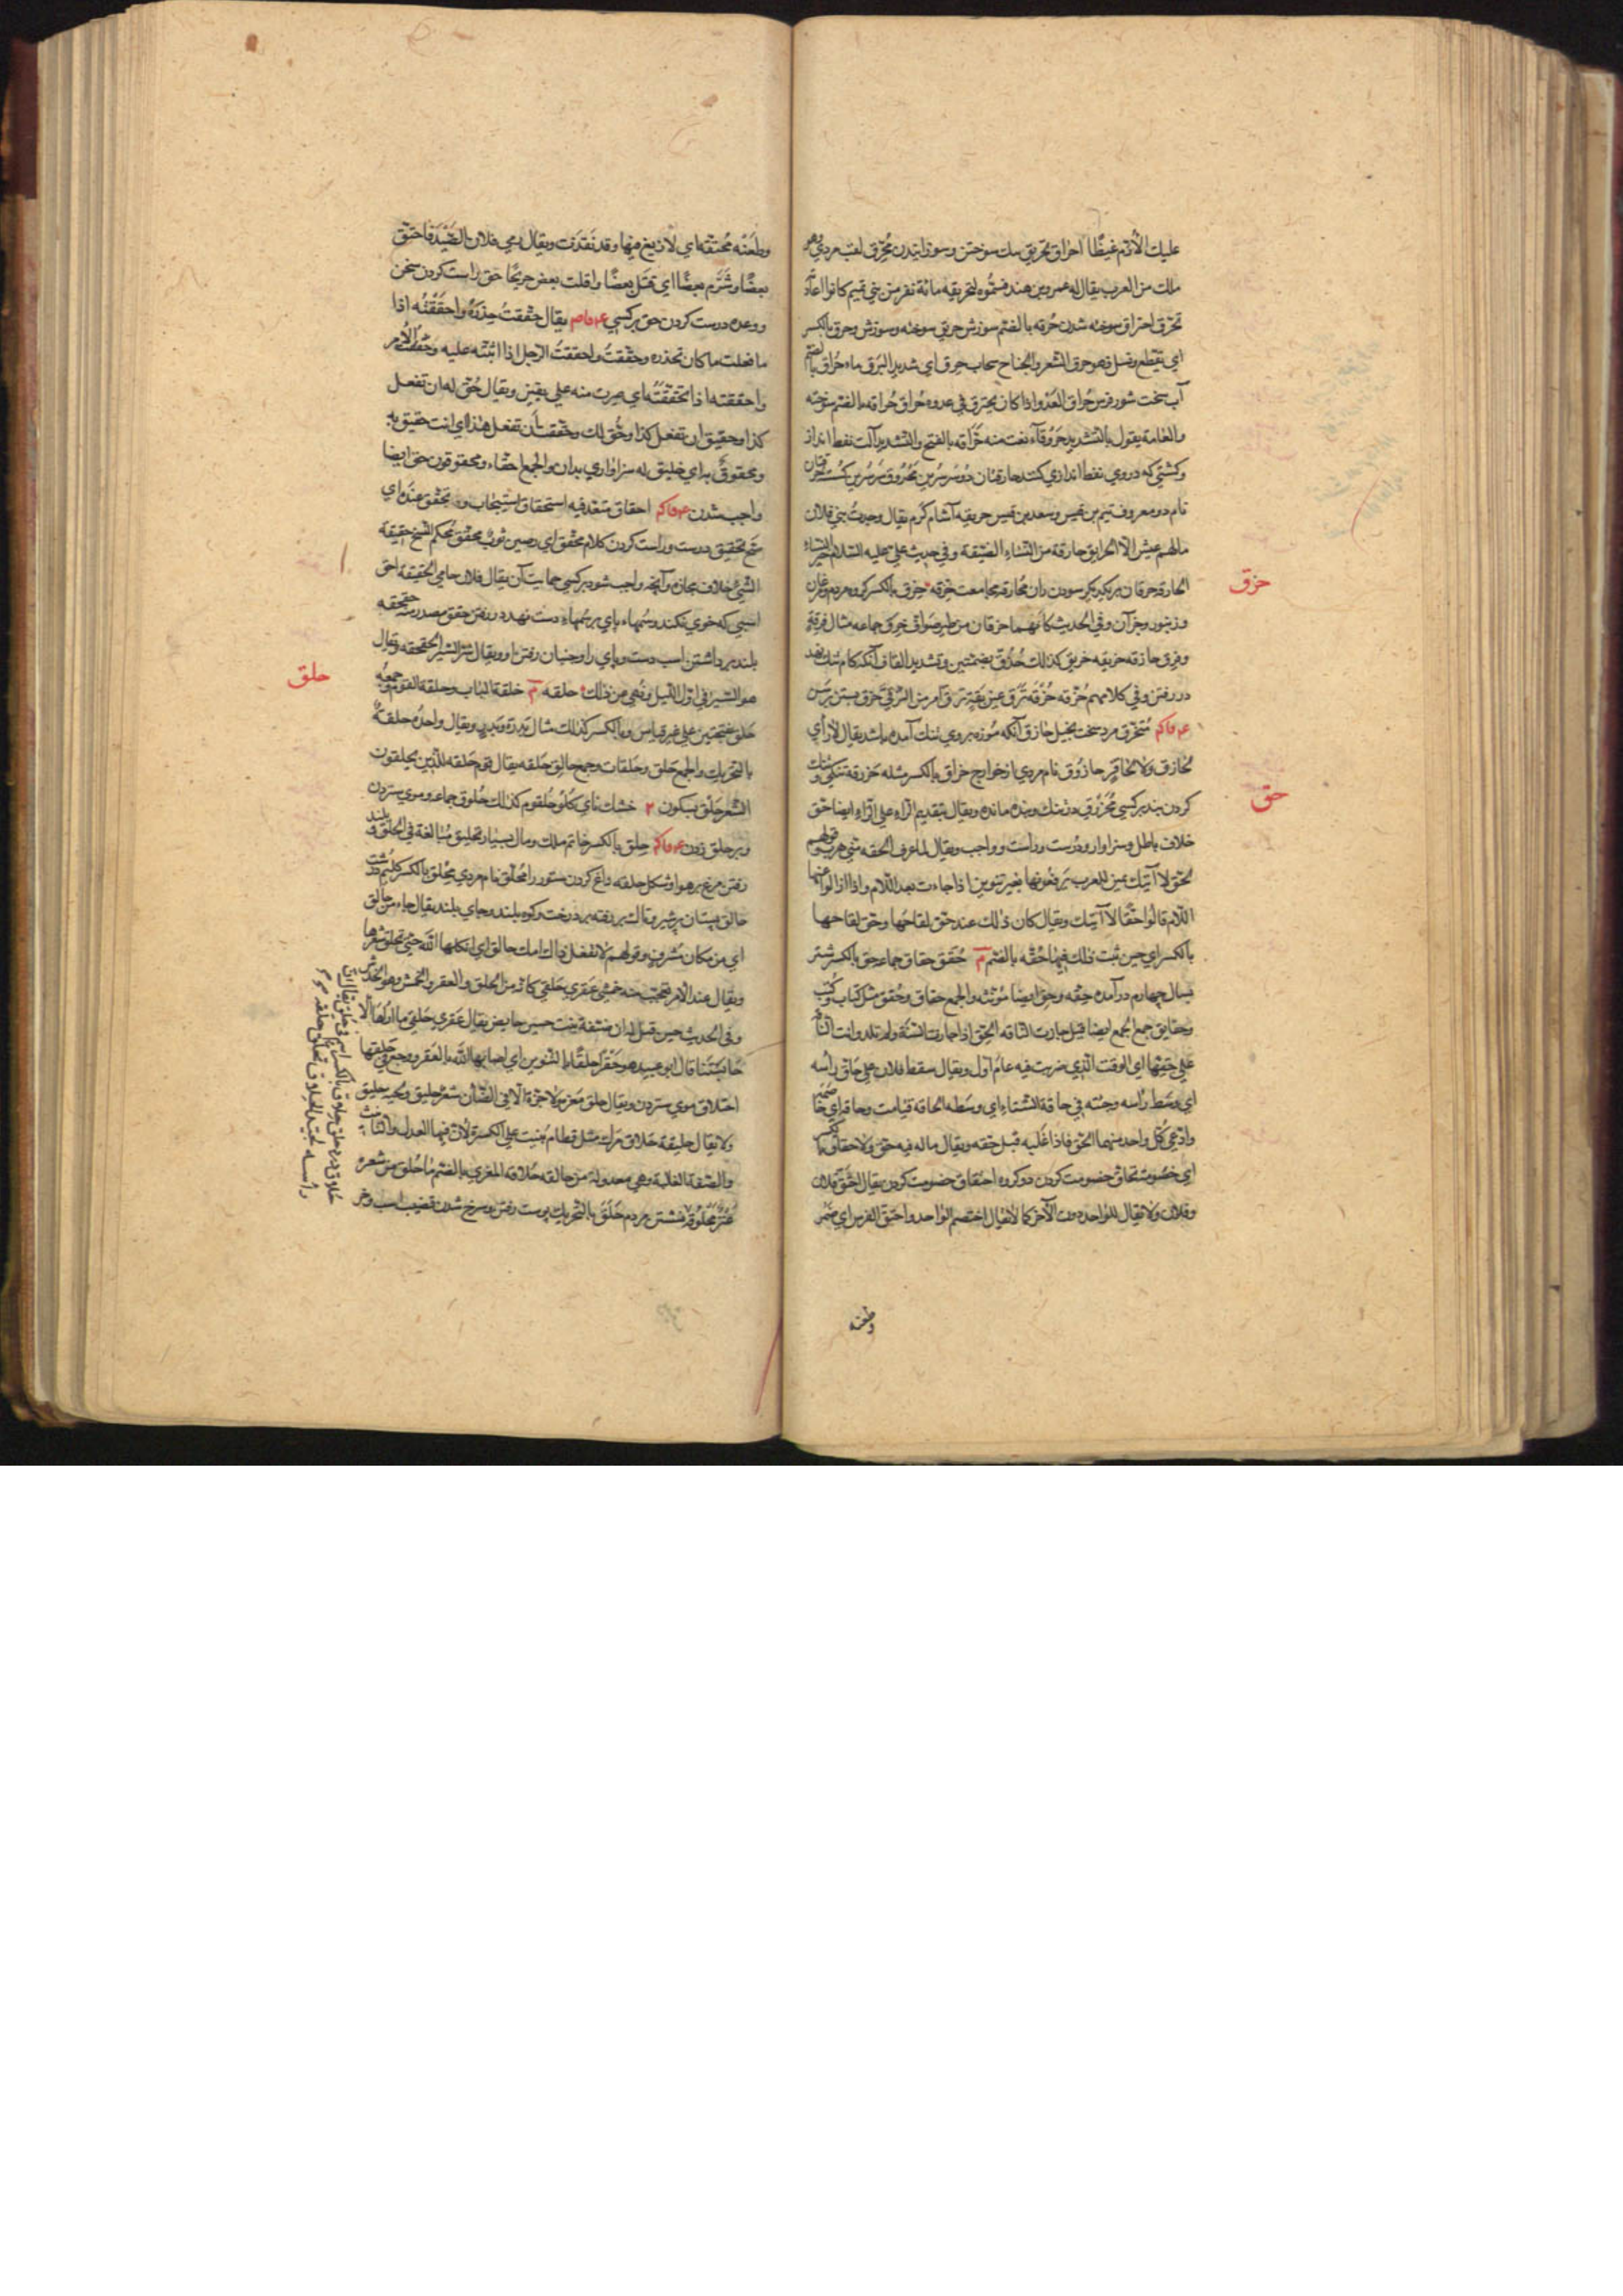 عليك الأرّم غيظًا احراق تحريق سك سوختن وسوزانيدن مُحرِّق لقب مردي وهو
ملك من العرب يقال له عمرو بن هند فسمّوه لتحريقه مائة نفر من بني تميم كانوا
تحرّق احتراق سوخته شدن حُرقه بالضم سوزش حريق سوخته وسوزش وحرق بالكسر
اي يتقطع ونسل وهو حرق الشعر والجناح سحاب حرق اي شديد البرق ماء حُراق بالضم
آب سخت شور فرس حُراق العَدْو اذا كان يحترق في عدوه حُراق حُراقه بالضم سوخته
والعامة يقول بالتشديد حَرُوقاء نعت منه حَرّاقه بالفتح والتشديد آلت نفط انداز
وكشتي كه دروي نفط اندازي كنند حارقتان دو سر سرين محروق سر سرين
نام دو معروف تيم بن قيس وسعد بن قيس حريقه آشام گرم يقال وجدتُ بني فلان
مالهم عيش الا الحرايق حارقة من النساء الضيقة وفي حديث علي عليه السلام خير النساء
الحارقة حرقان بريكديگر سودن ران محارقه مجامعت حزقه حزق بالكسر گروه مردم
وزنبور وجز آن وفي الحديث كأنهما حزقان من طير صوافّ حزق جماعه مثال فرقة
وفرق حازقه حزيقه حزيق كذلك حُزُقّ بضمتين وتشديد القاف آنكه گام تنك نهد
در رفتن وفي كلامهم حُزُقّه حُزُقّه تَرَقَّ عين بَقَّه ترقّ امر من الترقي حَزق بستن برسن
ع ف ك م مُتحزّق مرد سخت بخيل حازق آنكه موزه بروي تنك آمده باشد يقال لا رأي
لحازق ولا لحاقن حازُوق نام مردي از خوارج حزاق بالكسر مثله حَزرقة تنگي وتنك
كردن بند بر كسي مُحَزرَق در تنك وبند مانده ويقال بتقديم الراء على الزاء ايضا حق
خلاف باطل وسزاوار ودرست وراست وواجب ويقال لما عرف الحقه مني هرب وقولهم
لحقّ لا آتيك يمين للعرب يَرفعونها بغير تنوين اذا جاءت بعد اللام واذا ازالوا عنها
اللام قالوا حقًّا لا آتيك ويقال كان ذلك عند حَقّ لقاحها وحِق لقاحها
بالكسر اي حين ثبت ذلك فيها حُقّه بالضم م حُقَق حِقاق جماعه حِق بالكسر شتر
بسال چهارم درآمده حِقّه وحِق ايضا مؤنثه والجمع حقاق وحُقُق مثل كتاب وكتب
وحقايق جمع الجمع ايضا قيل جازت الناقه الحِقّ اذا جازت السّنَة ولم تلد واتت الناقة
علي حِقّها اي الوقت الذي ضربت فيه عام اول ويقال سقط فلان علي حاقّ رأسه
اي وسط رأسه وجئته في حاقة الشتاء اي وسطه الحاقه قيامت وحاقه اي خاصمه
وادّعى كل واحد منهما الحق فاذا غلبه قيل حقّه ويقال ماله فيه حق ولا حقاق بالكسر
اي خصُومَت تحاق خصومت كردن دو گروه احتقاق خصومت كردن يقال احتقّ فلان
وفلان ولا يقال للواحد دون الآخر كما لا يقال اختصم الواحد واحتق الفرس اي ضَمُر
وطعنه
حزق
حق
وطَعَنْه مُحتقّة اي لا زيغ فيها وقد نَفَذَت ويقال رمي فلان الصَّيْد فاحتق
بعضًا وشَرَّم بعضًا اي قتل بعضًا وافلت بعض جريحًا حَق راست كردن سخن
ووعده درست كردن حق بر كسي ع ف ص يقال حَقَقتُ حِذرَهُ واحقَقْتُه اذا
ما فعلت ما كان تحذره وحَقَقتُ الرجل واحققتُ الرجل اذا اثبتّه عليه وحقَقت الأمر
واحققته اذا تحَقّقتَه اي صرت منه علي يقين ويقال حُقّ له ان تفعل
كذا وحقيق ان تفعل كذا وحُقّ لك وحُققت أن تفعل هذا اي انت حقيق به
ومحقوقٌ به اي خليق له سزاواري بدان والجمع احقّاء ومحقوقون حق ايضا
واجب شدن ع ف ك م احقاق متعد فيه استحقاق استيجاب وه تحقّق عنده اي
صحّ تحقيق درست وراست كردن كلام محقّق اي رصين ثوب محقّق مُحكم النسج حقيقة
الشيء خلاف مجازه وآنچه واجب شود بر كسي حمايت آن يقال فلان حامي الحقيقة احق
اسبي كه خوي نكند وسُمهاء پاي بر سُمهاء دست نهد در رفتن حقق مصدر منه حقحقه
بلند برداشتن اسب دست وپاي را وجنبان رفتن او ويقال شر السّير الحقحقه ويقال
هو السّير في اول الليل ونُهي من ذلك حلقه م حلقة الباب وحلقة القوم وجمعه
حلق بفتحتين علي غير قياس وبالكسر كذلك مثال بدرة وبدر ويقال واحده حلقةٌ
بالتحريك والجمع حلق وحَلَقات وجمع حالق حَلَقه يقال قوم حَلَقه للّذين يحلقون
الشعر حَلْق بسكون ٢ خشك ناي گلو حُلقوم كذلك حُلوق جماعه وموي ستردن
وبر حلق زدن ع ف ك م حِلق بالكسر خاتم ملك ومال بسيار تحليق مبالغة في الحلق وبلند
رفتن مرغ بر هوا وشكل حلقه داغ كردن ستور را مُحلّق نام مردي مِحلَق بالكسر گليم درشت
حالق پستان پر شير وتاك بر رفته بر درخت وكوه بلند وجاي بلند يقال جاء من حالق
اي من مكان مُشرف وقولهم لا تفعل ذاك امك حالق اي اثكلها الله حتى تحلق شعرها
ويقال عند الامر تعجب منه خَمشي عَقري حَلقي كانه من الحَلق والعقر والخمش وهو الخدش
وفي الحديث حين قيل له ان صفية بنت حيي حايض يقال عَقري حلقي ما اراها الا
حابستنا قال ابو عبيد هو عَقْرًا حلقًا بالتنوين اي اصابها الله بالعقر ووجع في حلقها
احتلاق موي ستردن ويقال حلق مَعزَه ولا جزّه الا في الضان شعر حليق ولحيه حليق
ولا يقال حليقة حَلاقِ مرك مثل قطامِ بُنيت علي الكسرة لان فيها العدل والتانيث
والصفة الغالبة وهي معدولة من حالقه حُلاقة المعزي بالضم ما حُلق من شعره
عنز محلوقة حَلَق بالتحريك پوست رفتن وسرخ شدن قضيب اسب وخر
حلق